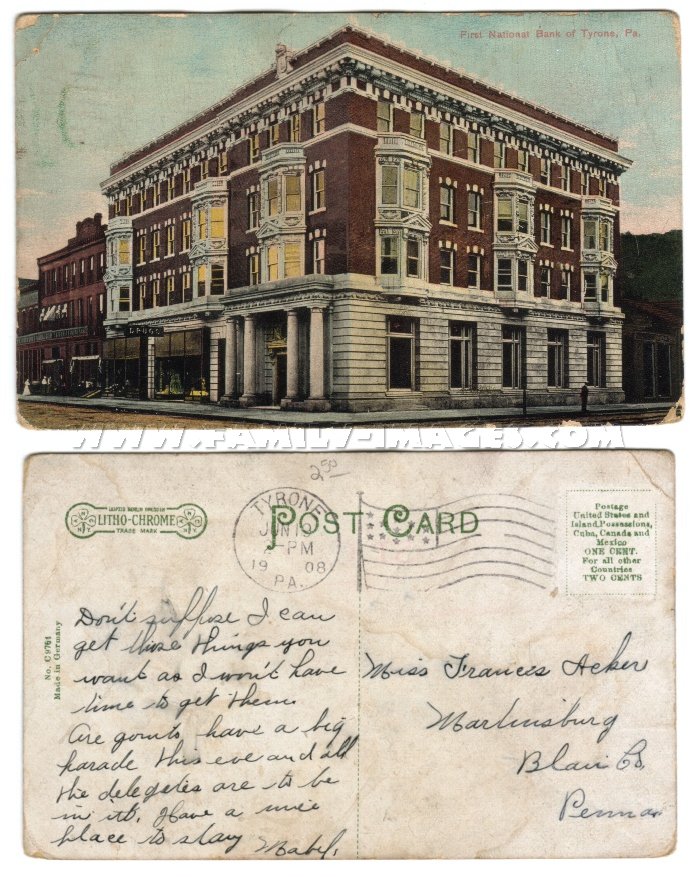 First National Bank of Tyrone, Pa.
DRUGS
WWW.FAMILY-IMAGES.COM
250
LITHO-CHROME
TRADE MARK
TYRONE
JUN 19
-PM
1908
PA.
POST CARD
Postage
United States and
Island Possessions,
Cuba, Canada and
Mexico
ONE CENT.
For all other
Countries
TWO CENTS
No. C 9761
Made in Germany
Don't suppose I can
get those things you
want as I won't have
time to get them.
Are goin to have a big
parade this eve and all
the delegates are to be
in it. Have a nice
place to stay Mabel.
Miss Frances Acker
Martinsburg
Blair Co.
Penna